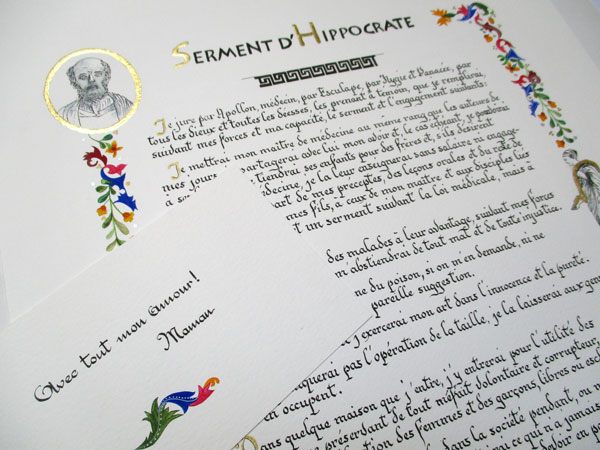 SERMENT D'HIPPOCRATE
Je jure par Apollon, médecin, par Esculape, par Hygie et Panacée, par
tous les dieux et toutes les déesses, les prenant à témoin, que je remplirai,
suivant mes forces et ma capacité, le serment et l'engagement suivants:
Je mettrai mon maître de médecine au même rang que les auteurs de
mes jours, partagerai avec lui mon avoir et, le cas échéant, je pourvoirai
tiendrai ses enfants pour des frères et, s'ils désirent
médecine, je la leur enseignerai sans salaire ni engage-
part de mes préceptes, des leçons orales et du reste de
mes fils, à ceux de mon maître et aux disciples liés
et un serment suivant la loi médicale, mais à
des malades à leur avantage, suivant mes forces
m'abstiendrai de tout mal et de toute injustice.
du poison, si on m'en demande, ni ne
pareille suggestion.
j'exercerai mon art dans l'innocence et la pureté.
pas l'opération de la taille, je la laisserai aux gens
en occupent.
Dans quelque maison que j'entre, j'y entrerai pour l'utilité des
me préservant de tout méfait volontaire et corrupteur,
des femmes et des garçons, libres ou
dans la société pendant, ou
ce qui n'a jamais
devoir en
Avec tout mon amour!
Maman